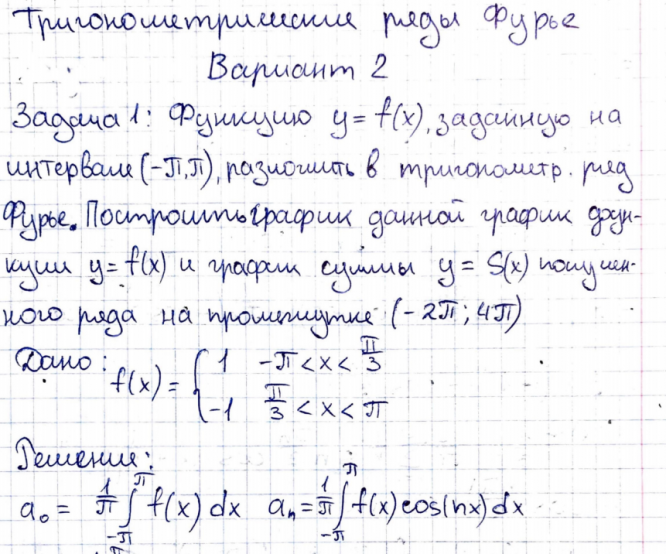 Тригонометрические ряды Фурье
Вариант 2
Задача 1: Функцию y = f(x), заданную на
интервале (-π, π), разложить в тригонометр. ряд
Фурье. Построить график данной график функ-
ции y = f(x) и график суммы y = S(x) получен-
ного ряда на промежутке (-2π; 4π)
Дано: f(x) = { 1 -π < x < π/3
-1 π/3 < x < π
Решение:
a₀ = 1/π ∫_{-π}^{π} f(x) dx aₙ = 1/π ∫_{-π}^{π} f(x) cos(nx) dx